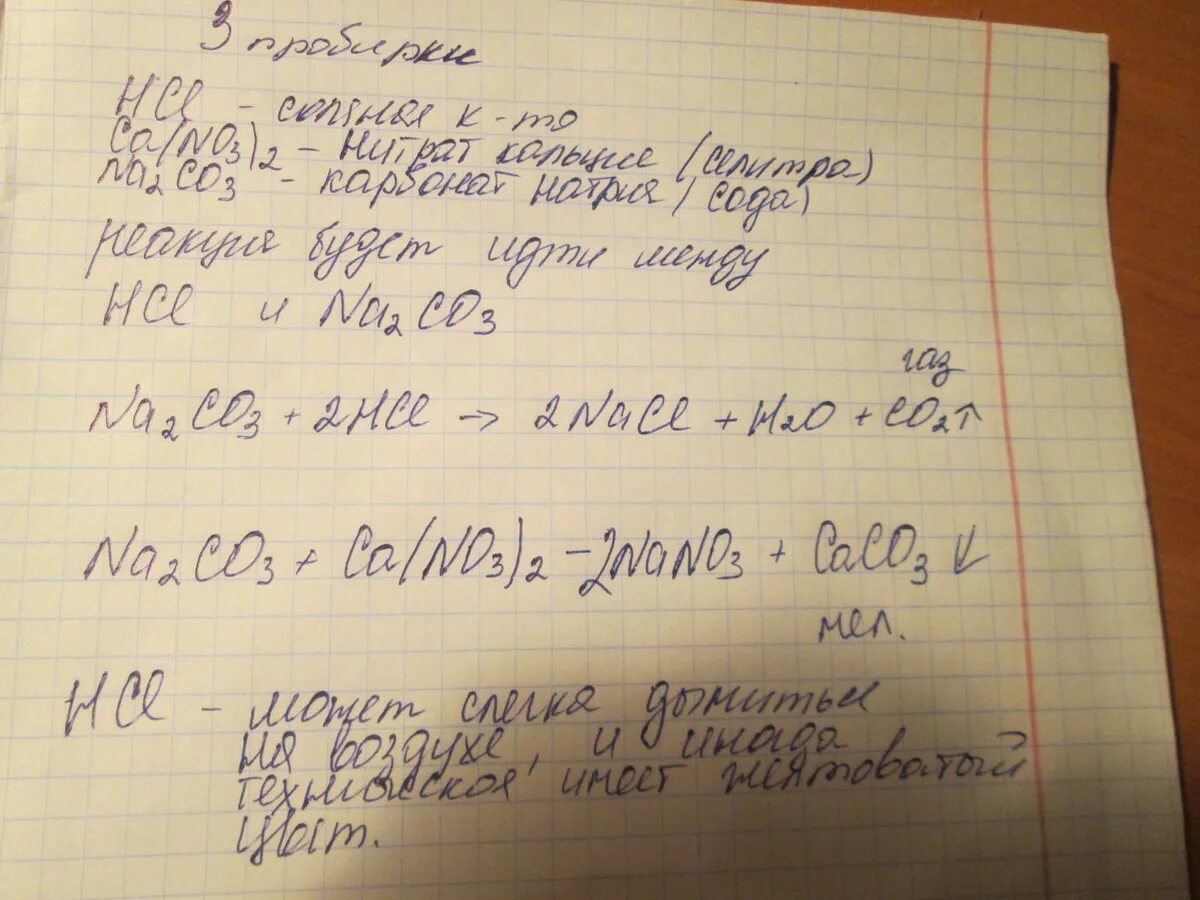 3 пробирки
HCl - соляная к-та
Ca(NO₃)₂ - нитрат кальция (селитра)
Na₂CO₃ - карбонат натрия (сода)
реакция будет идти между
HCl и Na₂CO₃
газ
Na₂CO₃ + 2HCl → 2NaCl + H₂O + CO₂↑
Na₂CO₃ + Ca(NO₃)₂ - 2NaNO₃ + CaCO₃ ↓
мел.
HCl - может слегка дымиться
на воздухе, и инода
техническая имеет желтоватый
цвет.